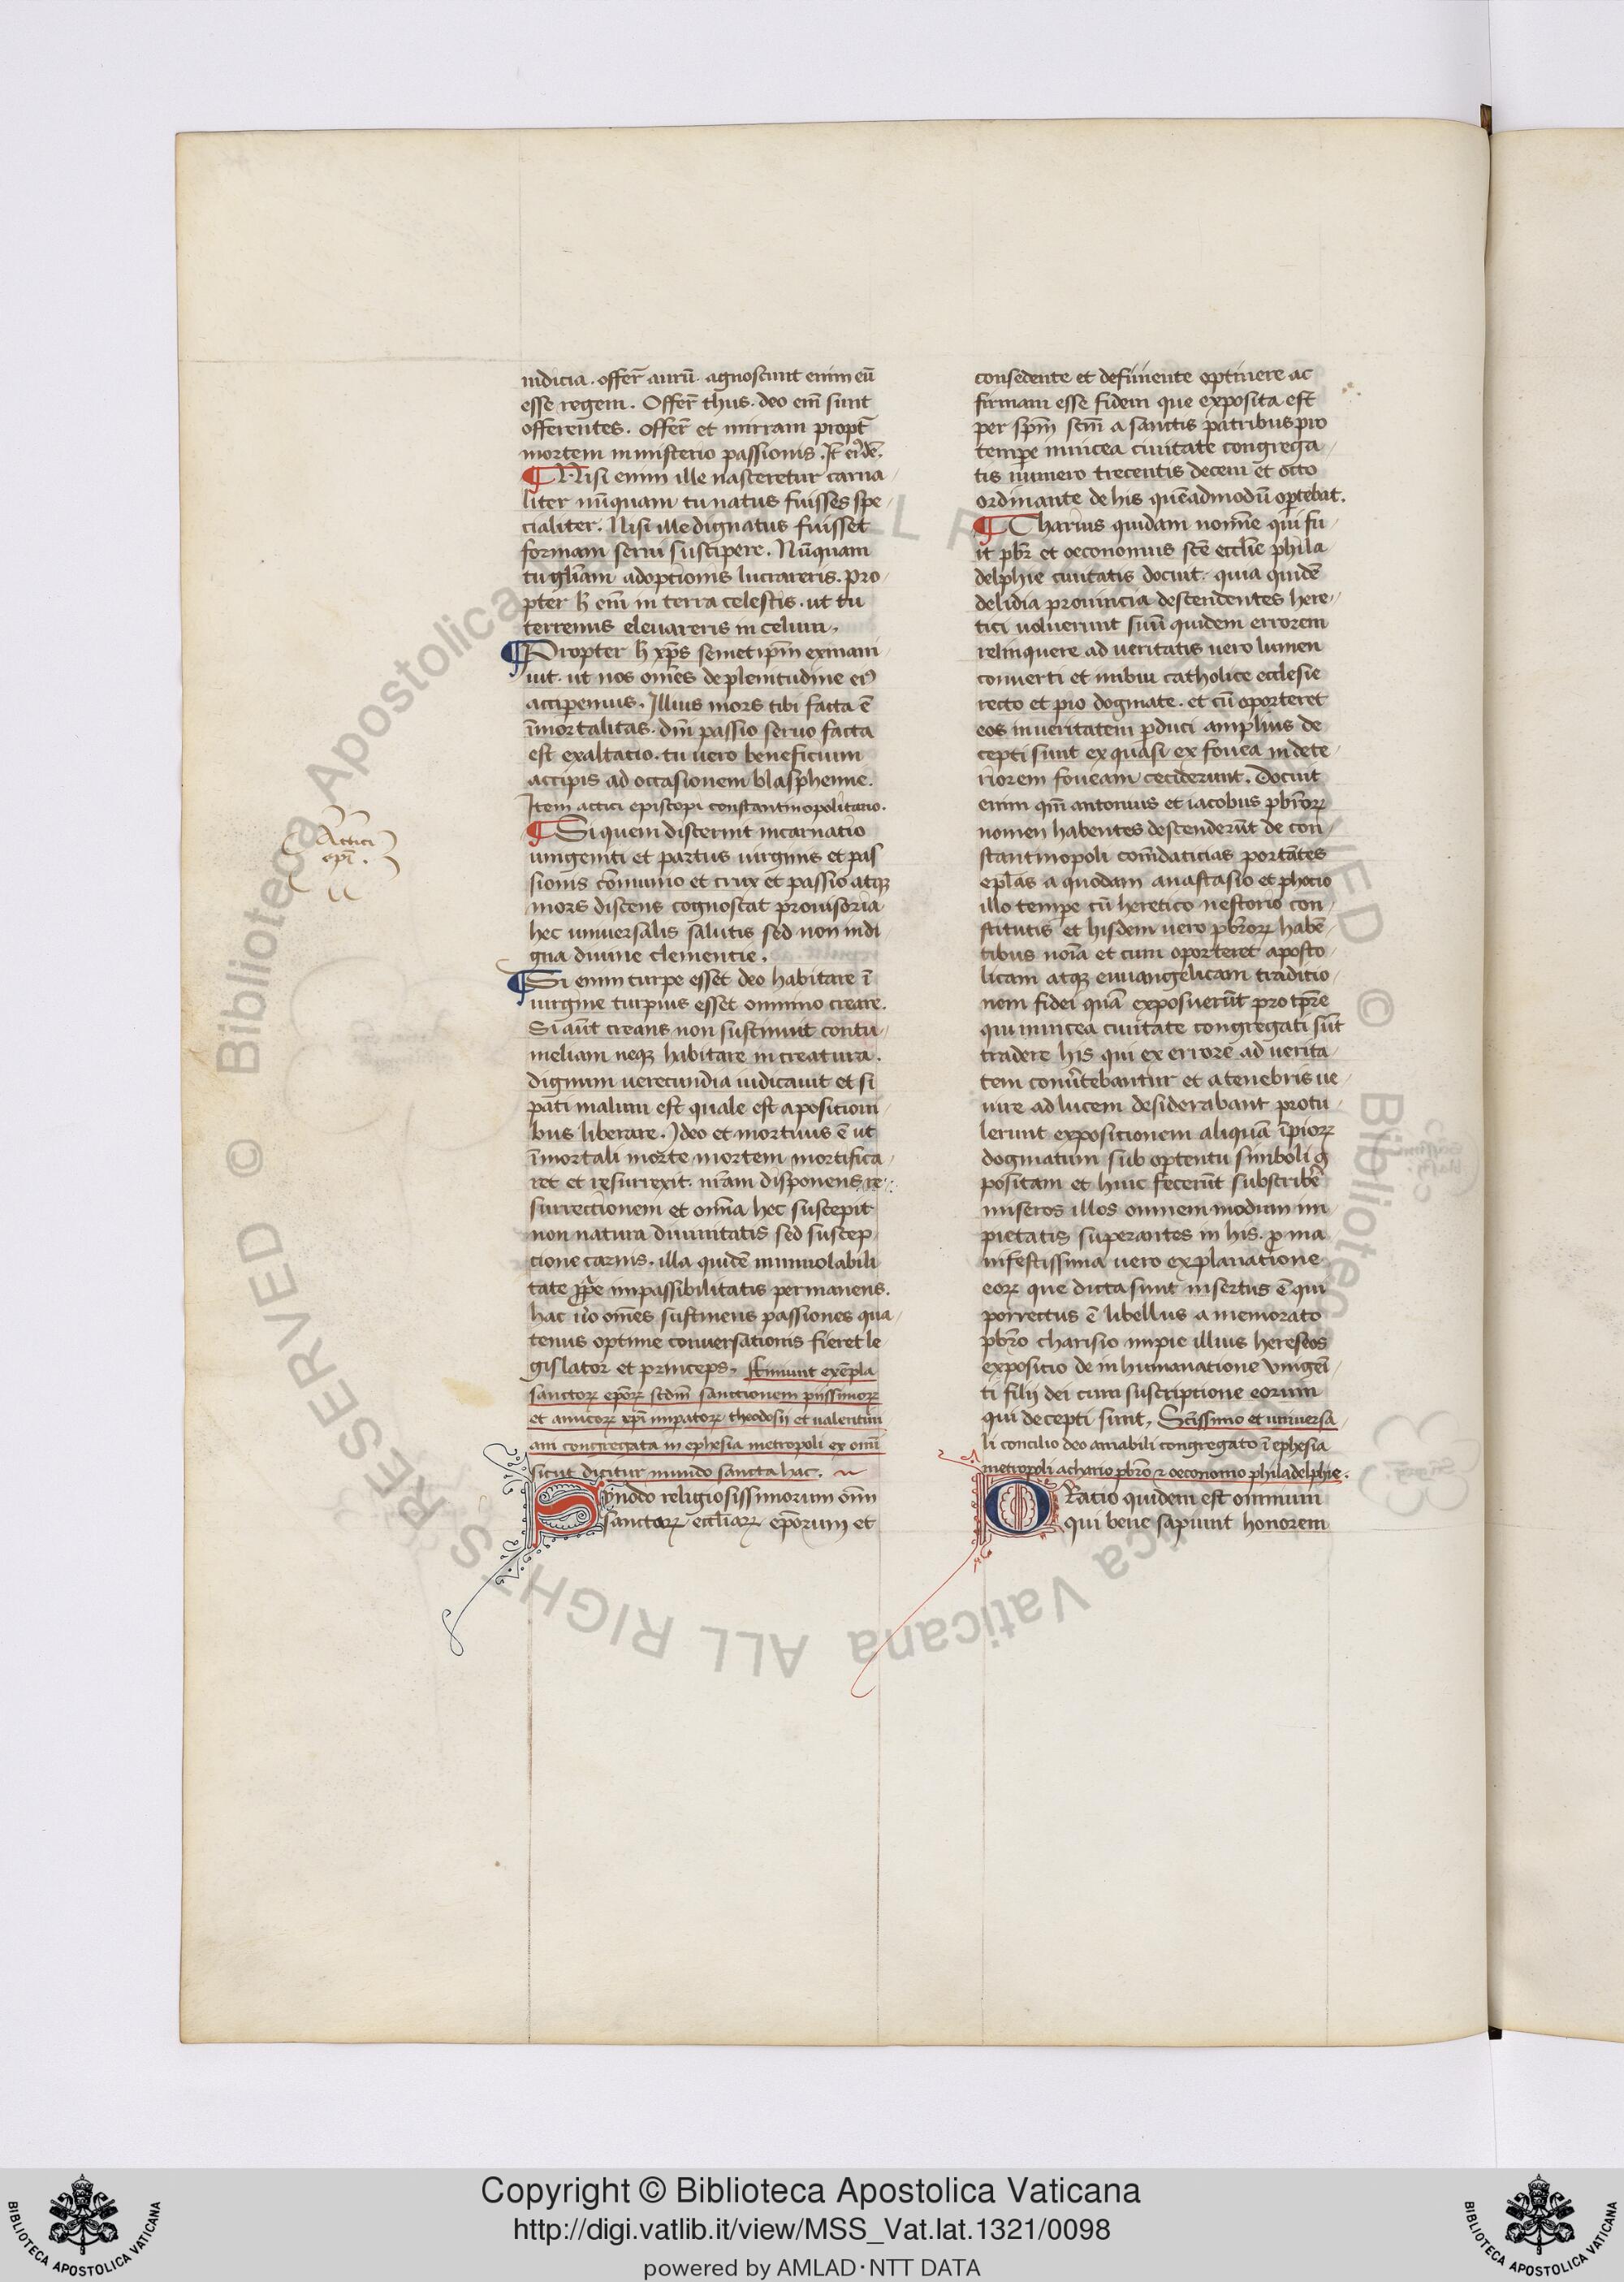 iudicia . offer̄ aurū . agnoscunt enim eū
esse regem . Offer̄ thus . deo em̄ sunt
offerentes . offer̄ et mirram propt̄
mortem in misterio passionis .
¶ Nisi enim ille nasceretur carna
liter nūquam tu natus fuisses spe
cialiter . Nisi ille dignatus fuisset
formam serui suscipere . Nūquam
tu gl̄iam adoptionis lucrareris . Pro
pter h̄ em̄ in terra celestis . ut tu
terrenus eleuareris in celum .
¶ Propter h̄ xp̄s semetip̄m exinani
uit . ut nos om̄es de plenitudine eiꝰ
accipemus . Illius mors tibi facta ē
īmortalitas . dn̄i passio seruo facta
est exaltatio . tu uero beneficium
accipis ad occasionem blasphemie .
Item attici episcopi constantinopolitano .
¶ Si quem discernit incarnatio
unigeniti et partus uirginis et pas
sionis cōmunio et crux et passio atqꝫ
mors discens cognoscat prouisoria
hec uniuersalis salutis sed non indi
gna diuine clementie .
¶ Si enim turpe esset deo habitare ī
uirgine turpius esset omnino creare .
Si aūt creans non sustinuit contu
meliam neqꝫ habitare in creatura .
dignum uerecundia iudicauit et si
pati malum est quale est a positioni
bus liberare . Ideo et mortuus ē ut
īmortali morte mortem mortifica
ret et resurrexit . nr̄am disponens re
surrectionem et om̄ia hec suscepit
non natura diuinitatis sed suscep
cione carnis . illa quidē in inuiolabili
tate impassibilitatis permanens .
hac u̾o om̄es sustinens passiones qua
tenus optime conuersationis fieret le
gislator et princeps . finiunt exēpla
sanctoꝝ ep̄oꝝ scdm̄ sanctionem piissimoꝝ
et amicoꝝ xp̄i imp̄atoꝝ theodosii et ualentini
ani congregata in ephesia metropoli ex omī
sicut dicitur mundo sancta hac .
Synodo religiosissimorum om̄i
sanctoꝝ eccl̄iaꝝ ep̄orum et
Attici
ep̄i .
consedente et definiente optinere ac
firmam esse fidem que exposita est
per sp̄m scm̄ a sanctis patribus pro
tempe in nicea ciuitate congrega
tis numero trecentis decem et octo
ordinante de his quēadmodū optebat .
¶ Charius quidam nomīe qui fu
it pbr̄ et oeconomus scē eccl̄ie phila
delphie ciuitatis docuit . quia quidē
de lidia prouincia descendentes here
tici uoluerunt suū quidem errorem
relinquere ad ueritatis uero lumen
conuerti et inbiu catholice ecclesie
recto et pio dogmate . et cū oporteret
eos in ueritatem ꝑduci amplius de
cepti sunt ex quasi ex fouea in dete
riorem foueam ceciderunt . Docuit
enim qm̄ antonius et iacobus pbr̄oꝝ
nomen habentes descenderūt de con
stantinopoli com̄daticias portātes
epl̄as a quodam anastasio et photio
illo tempe cū heretico nestorio con
stitutis et hisdem uero pbr̄oꝝ habē
tibus noīa et cum oporteret aposto
licam atqꝫ euuangelicam traditio
nem fidei quā exposuerūt pro tp̄re
qui in nicea ciuitate congregati sūt
tradere his qui ex errore ad uerita
tem conu̾tebantur et a tenebris ue
nire ad lucem desiderabant protu
lerunt expositionem aliquā īpioꝝ
dogmatum sub optentu simboli ꝓ
positam et huic fecerūt subscriber̄
miseros illos omnem modum im
pietatis superantes in his . ꝓ ma
nifestissima uero explanatione
eoꝝ que dicta sunt insertus ē qui
porrectus ē libellus a memorato
pbr̄o charisio impie illius hereseos
expositio de in humanatione vnigeī
ti filij dei cum suscriptione eorum
qui decepti sunt . Scīssimo et uniuersa
li concilio deo amabili congregato ī ephesia
metropoli a chario pbr̄o ⁊ oeconomo philadelphie .
ORatio quidem est omnium
qui bene sapiunt honorem
Copyright © Biblioteca Apostolica Vaticana
http://digi.vatlib.it/view/MSS_Vat.lat.1321/0098
powered by AMLAD·NTT DATA
BIBLIOTECA APOSTOLICA VATICANA
BIBLIOTECA APOSTOLICA VATICANA
© Biblioteca Apostolica Vaticana ALL RIGHTS RESERVED